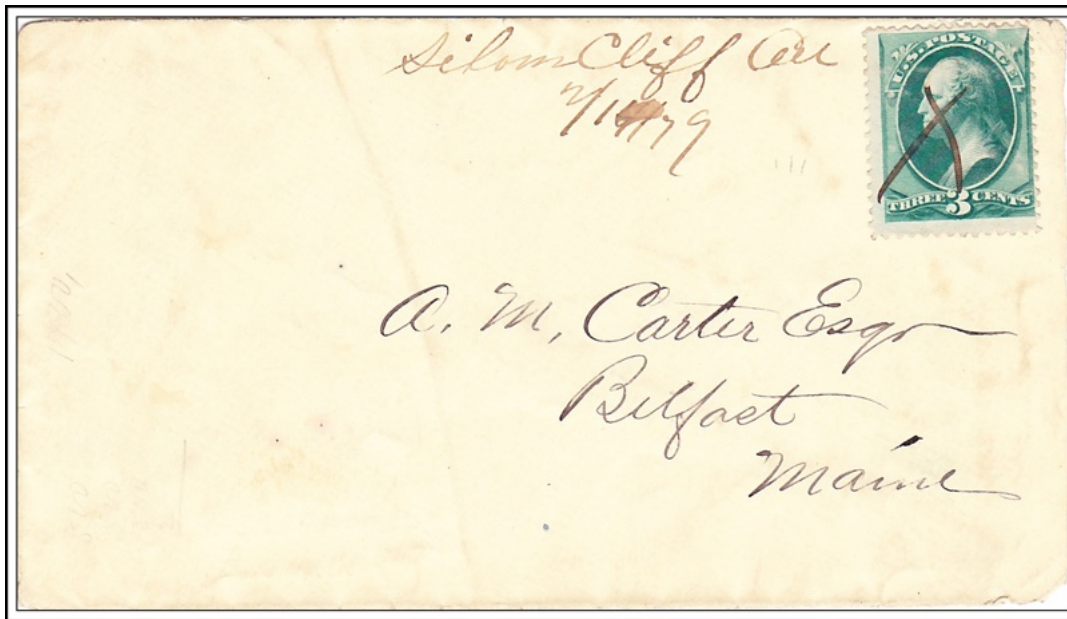 Silom Cliff
U.S. POSTAGE
THREE 3 CENTS
A. M. Carter Esqr
Belfast
Maine